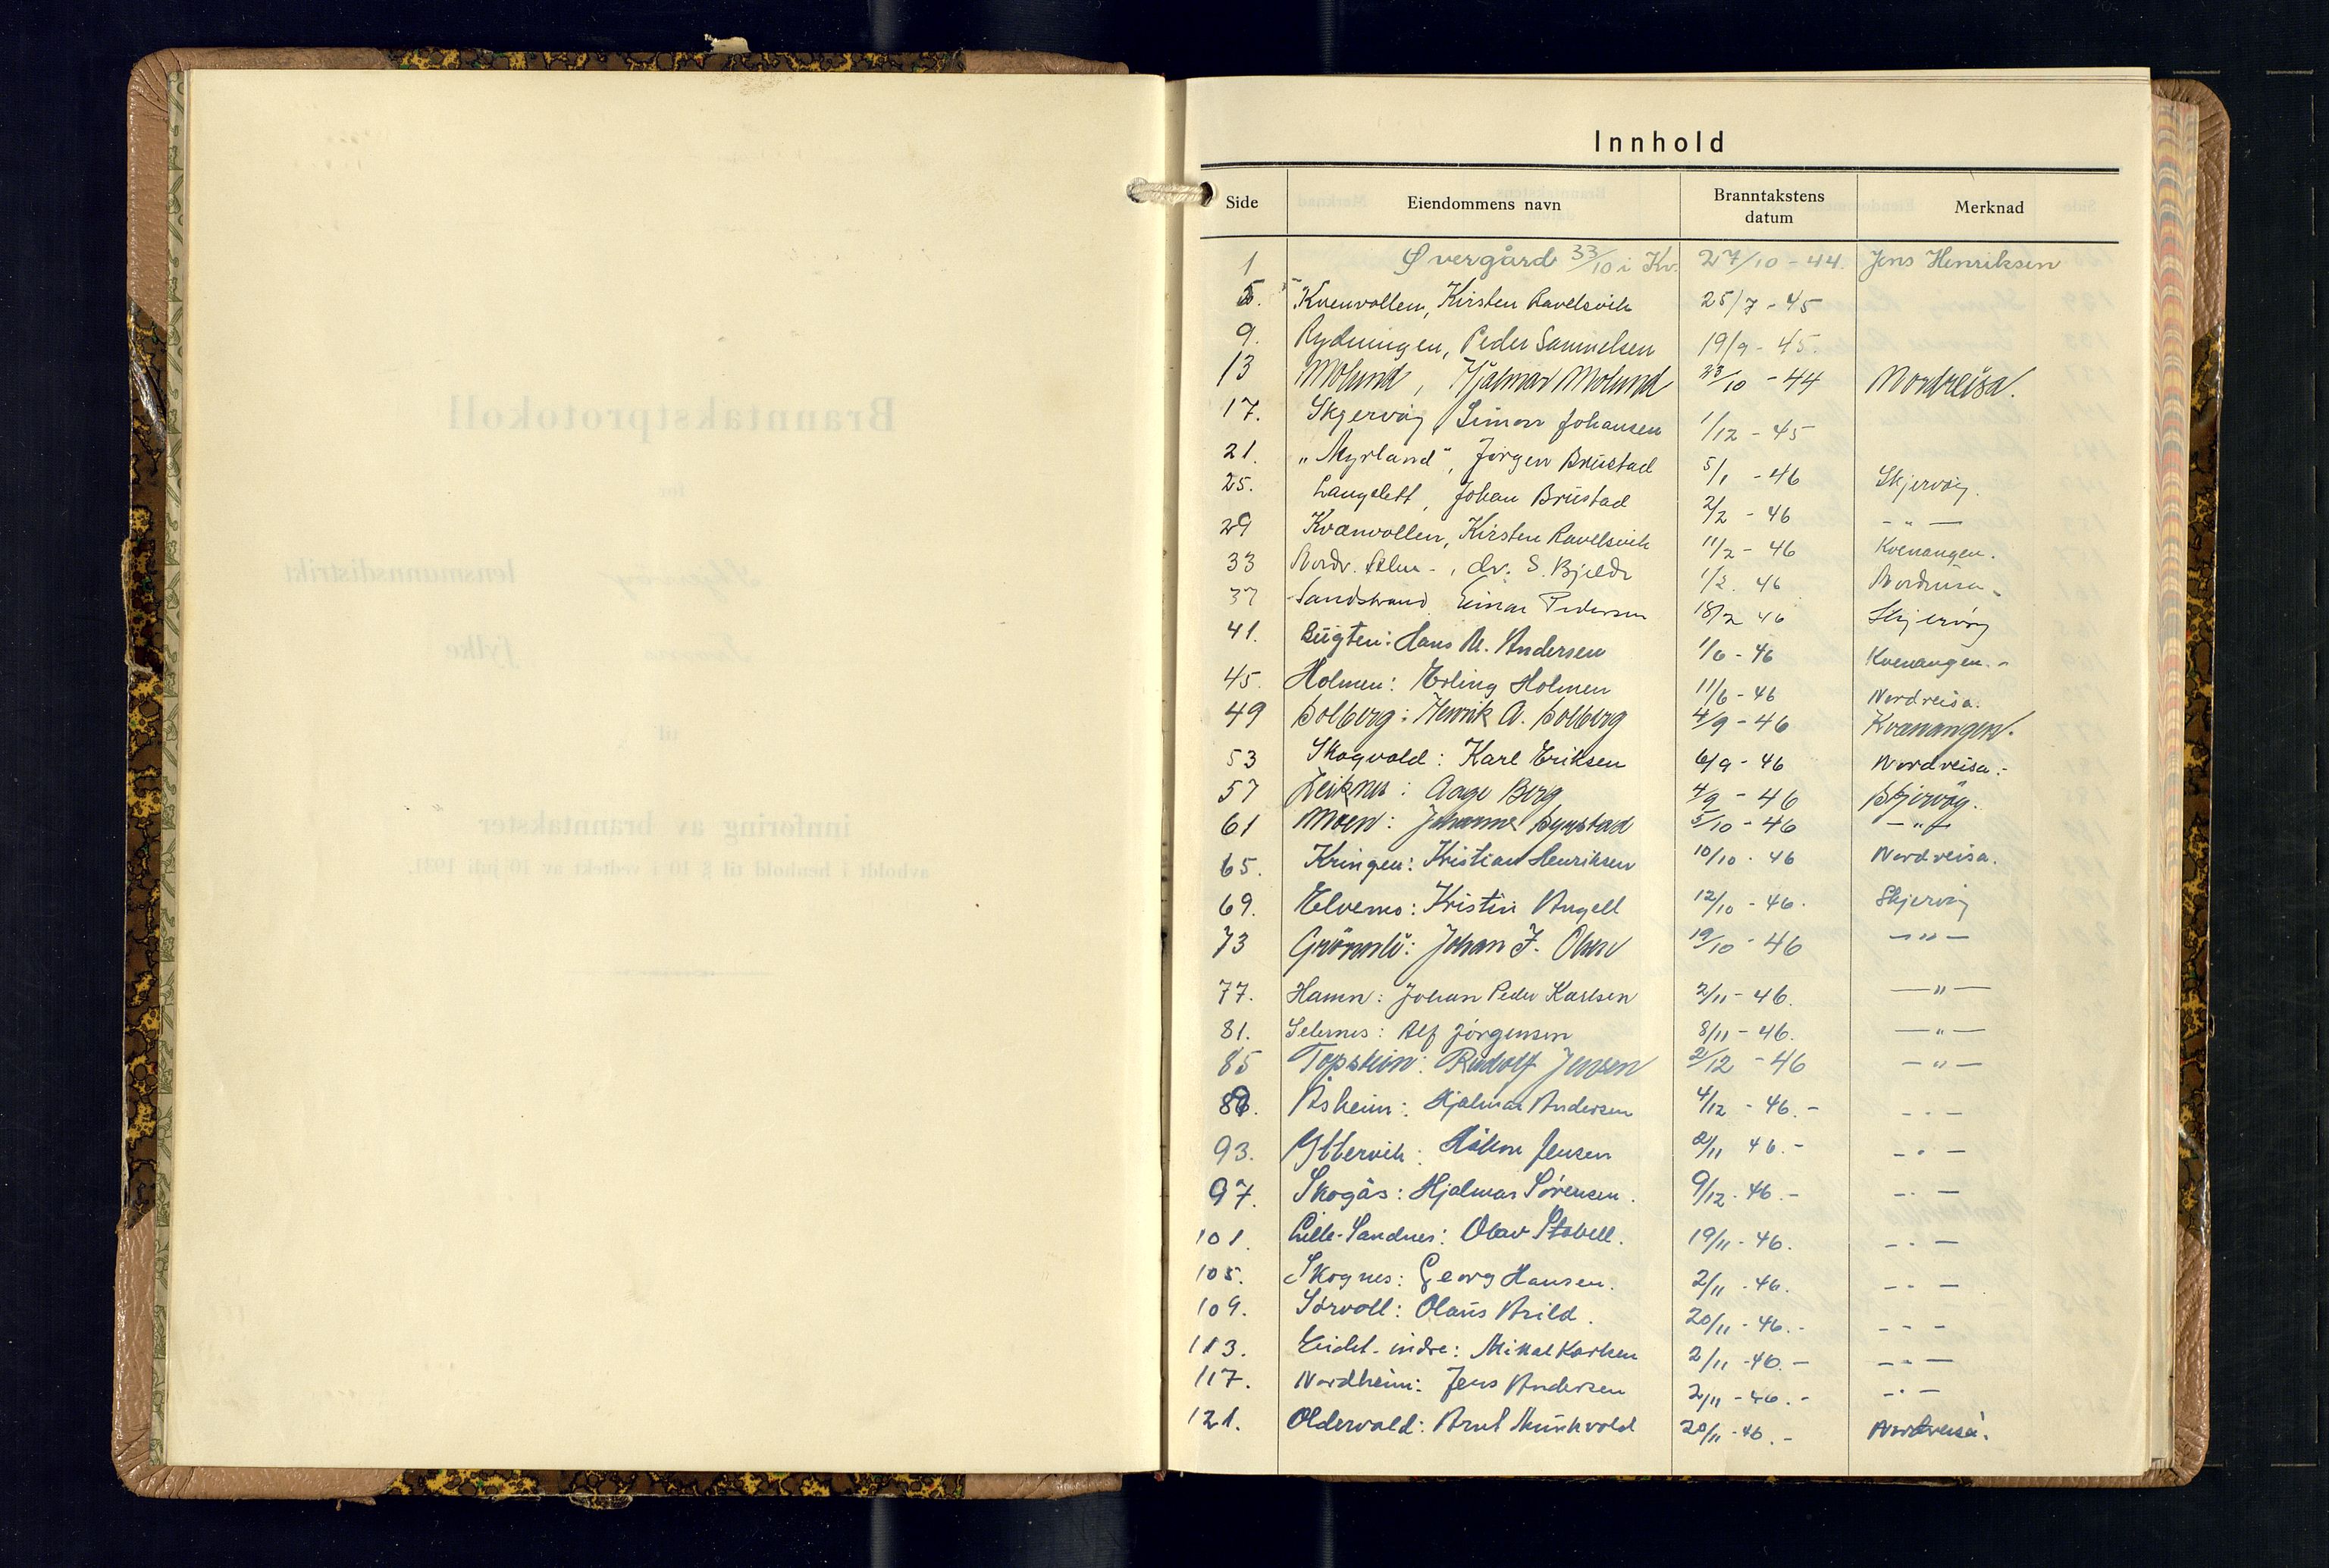 Innhold
Side Eiendommens navn Branntakstens datum Merknad
1 Øvergård 33/10 i Kv. 27/10 - 44. Jens Henriksen
5. Kvenvollen, Kirsten Ravelsvik 25/7 - 45
9. Rydningen, Peder Samuelsen 19/9 - 45.
13 Molund, Hjalmar Molund 23/10 - 44 Nordreisa.
17. Skjervøy, Simon Johansen 1/12 - 45
21. „Myrland", Jørgen Brustad 5/1 - 46 Skjervøy.
25. Langslett, Johan Brustad 2/2 - 46 - " -
29 Kvænvollen, Kirsten Ravelsvik 11/2 - 46 Kvenangen.
33 Nordr. , dr. S. 1/2. 46 Nordreisa.
37 Sandstrand Einar Pedersen 18/2 46 Skjervøy
41. Bugten: Hans M. Andersen 1/6 - 46 Kvenangen.-
45. Holmen: Erling Holmen 11/6 - 46 Nordreisa.
49 Solberg: Henrik A. Solberg 4/9 - 46 Kvænangen.
53 Skogvold: Karl Eriksen 6/9 - 46 Nordreisa.-
57 : Aage Berg 4/9 - 46 Skjervøy.
61 Moen: Johannes 5/10 - 46 - " -
65. Kringen: Kristian Henriksen 10/10 - 46 Nordreisa.
69. Elvemo: Kristin Angell 12/10 - 46. Skjervøy
73 Grønnli: Johan J. Olsen 19/10 - 46 - " -
77. Hamn: Johan Peder Karlsen 2/11 - 46. - " -
81. : Alf Jørgensen 8/11 - 46. - " -
85 : Rudolf Jensen 2/12 - 46 - " -
89. Åsheim: Hjalmar Andersen 4/12 - 46.- - " -
93. Yttervik: Håkon Jensen 2/11 46.- - " -
97. Skogås: Hjalmar Sørensen. 9/12. 46.- - " -
101. Lille-Sandnes: Olav Stabell. 19/11 - 46. - " -
105. Skognes: Georg Hansen. 2/11 - 46. - " -
109. Sørvoll: Olaus Arild. 20/11 - 46.- - " -
113. Eidet-indre: Mikal Karlsen 2/11 - 46.- - " -
117. Nordheim: Jens Andersen 2/11 - 46.- - " -
121. Oldervold: Arnt 20/11 - 46.- Nordreisa.